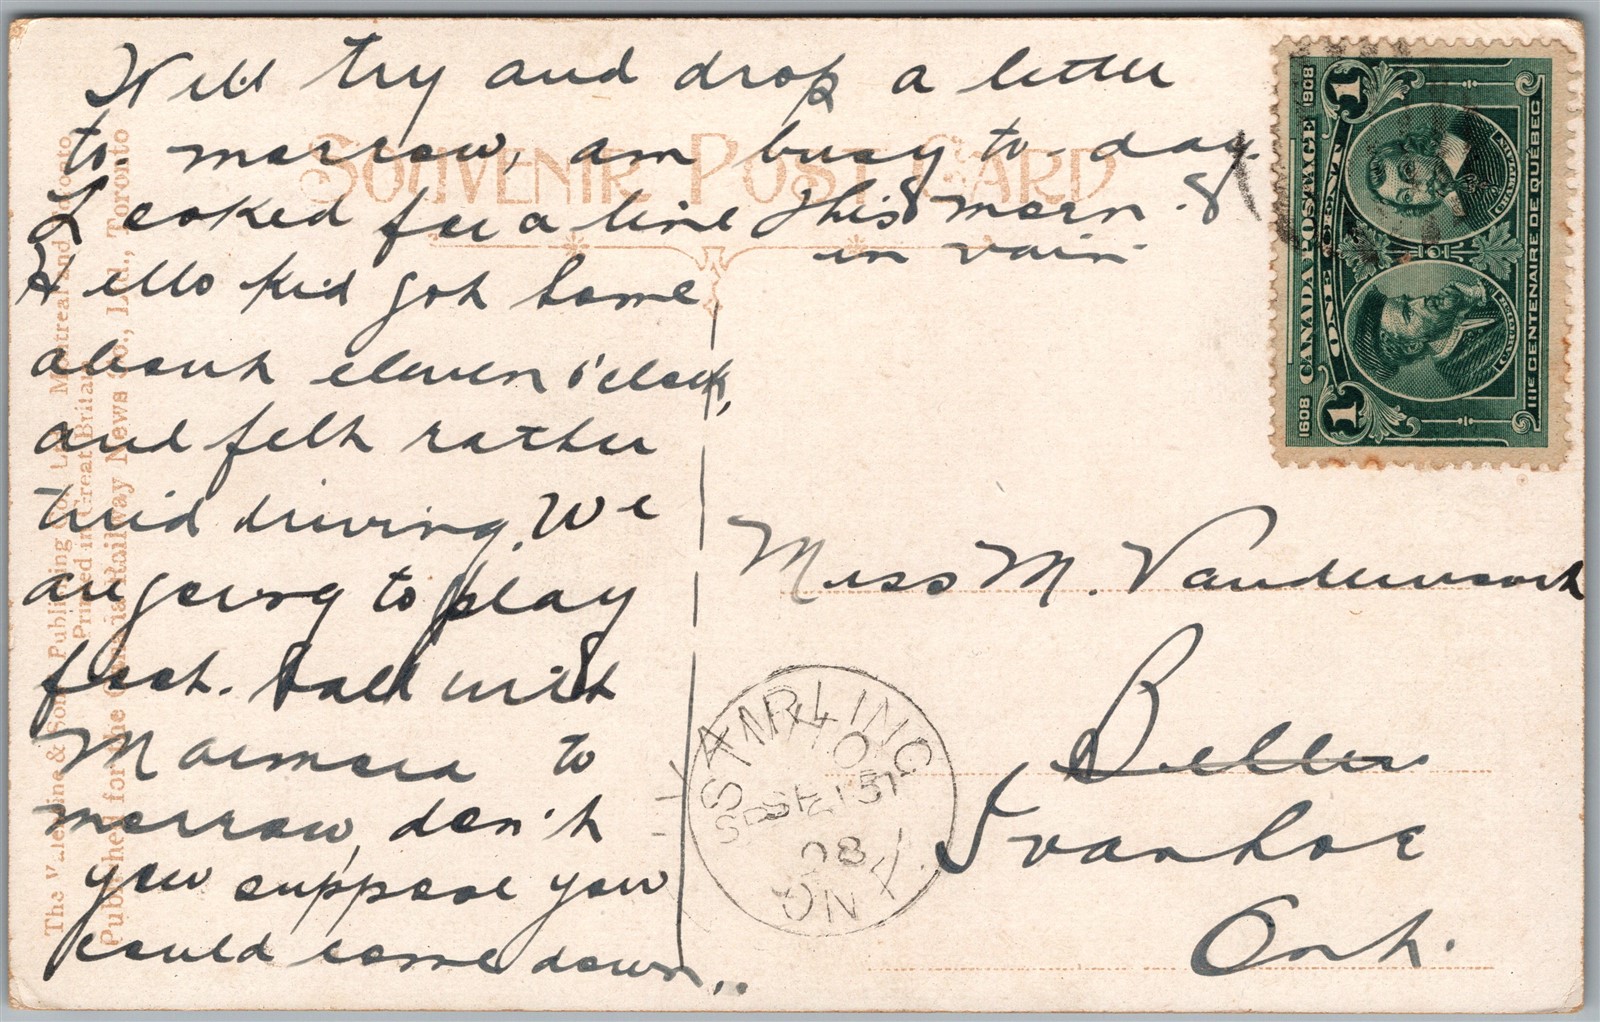 Will try and drop a letter
to-morrow, am busy to-day.
Looked for a line this morn.
in vain
Hello kid got home
about eleven o'clock,
and felt rather
tired driving. We
are going to play
foot-ball with
Marmora to
morrow, don't
you suppose you
could come down..
SOUVENIR POST CARD
The Valentine & Sons Publishing Co., Ltd., Montreal and Toronto
Printed in Great Britain
Published for the Canadian Railway News Co., Ltd., Toronto
1608 CANADA POSTAGE 1908
ONE CENT
1
1
CARTIER
CHAMPLAIN
IIIE CENTENAIRE DE QUÉBEC
STIRLING
SP 15
08
ONT.
Miss M. Vandervoort
Bellview
Ivanhoe
Ont.